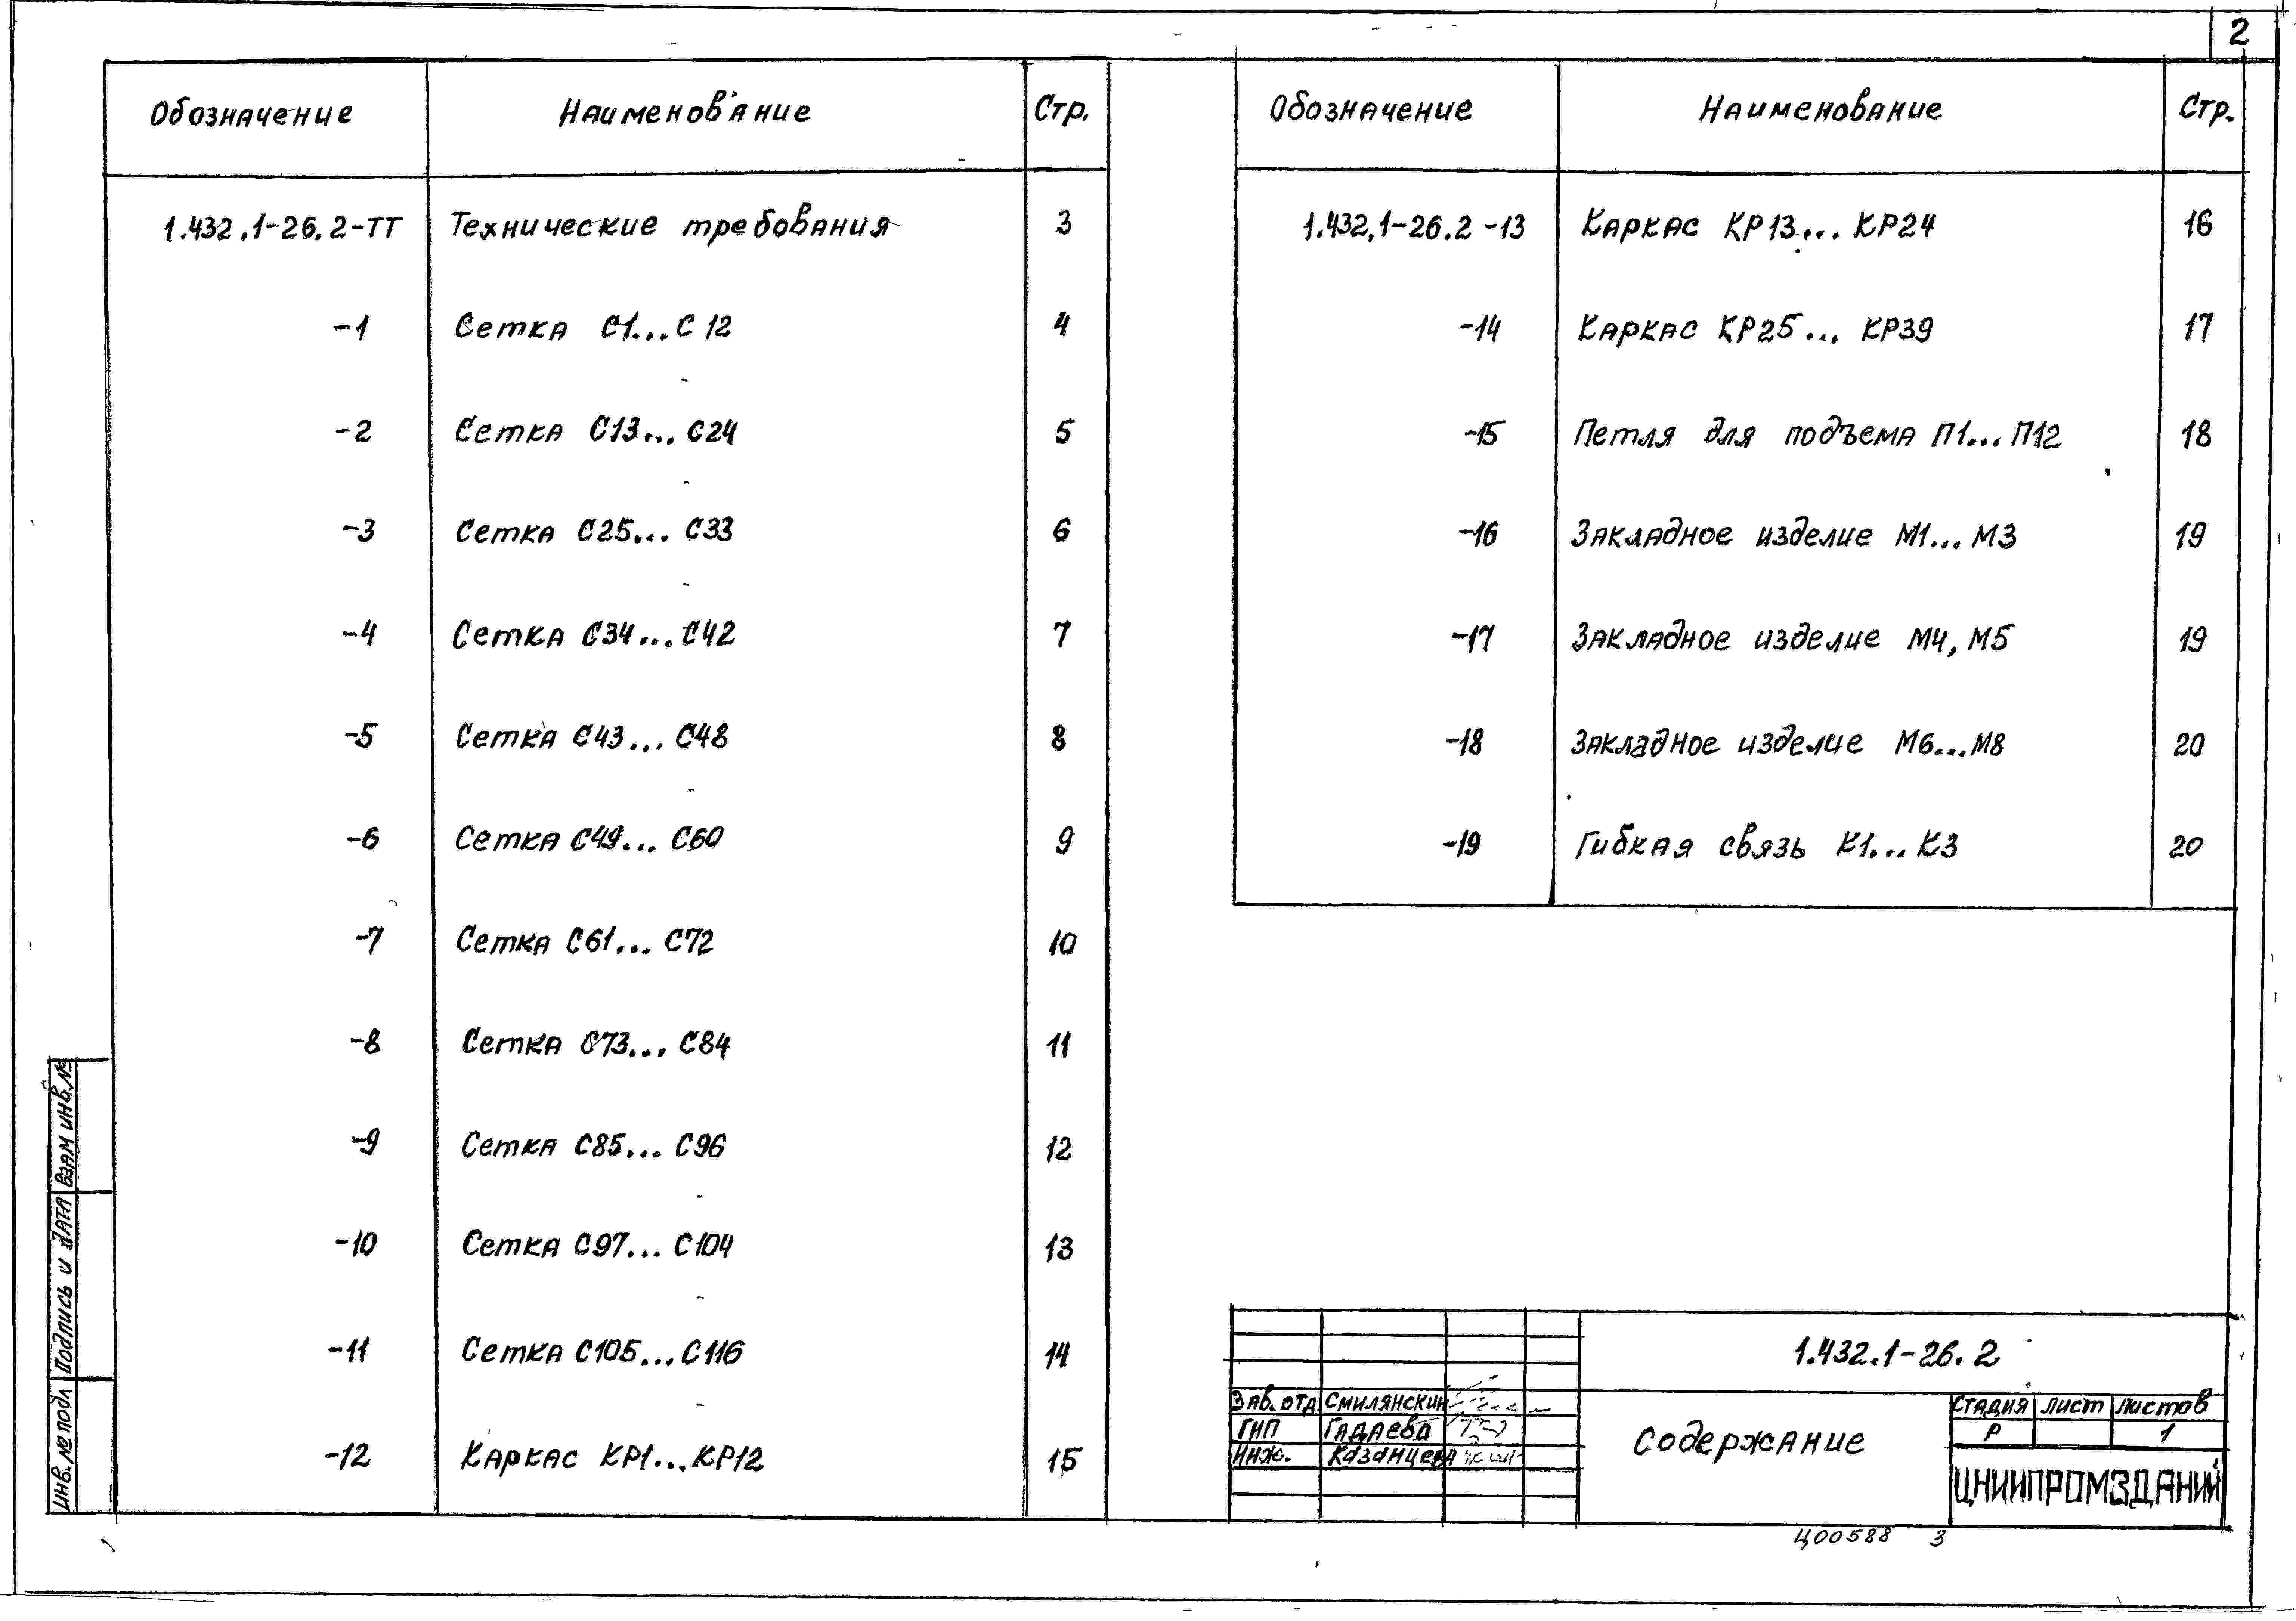 2
Обозначение Наименование Стр.
1.432.1-26.2-ТТ Технические требования 3
-1 Сетка С1...С12 4
-2 Сетка С13...С24 5
-3 Сетка С25...С33 6
-4 Сетка С34...С42 7
-5 Сетка С43...С48 8
-6 Сетка С49...С60 9
-7 Сетка С61...С72 10
-8 Сетка С73...С84 11
-9 Сетка С85...С96 12
-10 Сетка С97...С104 13
-11 Сетка С105...С116 14
-12 Каркас КР1...КР12 15
Обозначение Наименование Стр.
1.432.1-26.2-13 Каркас КР13...КР24 16
-14 Каркас КР25...КР39 17
-15 Петля для подъема П1...П12 18
-16 Закладное изделие М1...М3 19
-17 Закладное изделие М4, М5 19
-18 Закладное изделие М6...М8 20
-19 Гибкая связь К1...К3 20
Инв. № подл Подпись и дата Взам инв. №
1.432.1-26.2
Зав. отд. Смилянский
ГИП Гадаева
Инж. Казанцева
Содержание
Стадия Лист Листов
Р 1
ЦНИИПРОМЗДАНИЙ
Ц00588 3